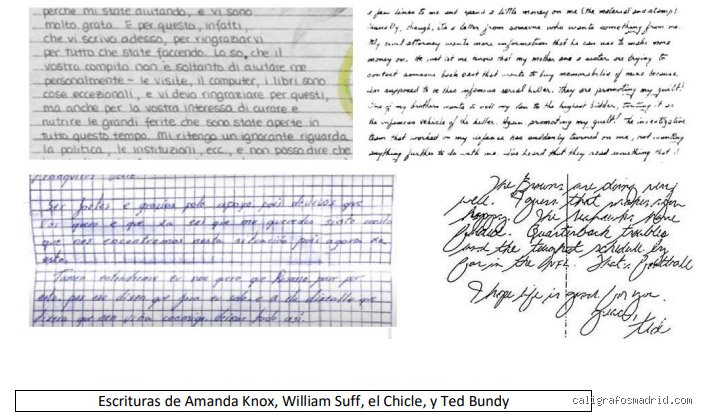 perche mi state aiutando, e vi sono
molto grata. E per questo, infatti,
che vi scrivo adesso, per ringraziarvi
per tutto che state faccendo. Lo so, che il
vostro compito non è soltanto di aiutare me
personalmente - le visite, il computer, i libri sono
cose eccezionali, e vi devo ringraziare per questi,
ma anche per la vostra interessa di curare e
nutrire le grandi ferite che sono state aperte in
tutto questo tempo. Mi ritengo un ignorante riguarda
la politica, le instituzioni, ecc, e non posso dire che
a few lines to me and spend a little money on me (the material and stamp)
usually, though, its a letter from someone who wants something from me.
My civil attorney wants more information that he can use to make more
money on. He let me know that my mother and a sister are trying to
contact someone back east that wants to buy memorabilia of mine because
im supposed to be this infamous serial killer. They are promoting my guilt!
One of my brothers wants to sell my van to the highest bidder, touting it as
the infamous vehicle of the killer. Again promoting my guilt! The investigation
team that worked on my defense has suddenly turned on me, not wanting
anything further to do with me. Ive heard that they read something that I
Ser fortes e gracias polo apoyo, pois
que sei que me queredes moito
que nos encontremos nesta situación pois agora xa
esta.
Tamén eu non quero que
esto, por eso que
que non viña conmigo, deixar todo así.
The Browns are doing very
well. I guess that makes you
happy. The Seahawks have
folded. Quarterback troubles
and the toughest schedule by
far in the NFL. That's football
I hope life is good for you.
peace,
ted
Escrituras de Amanda Knox, William Suff, el Chicle, y Ted Bundy
caligrafosmadrid.com